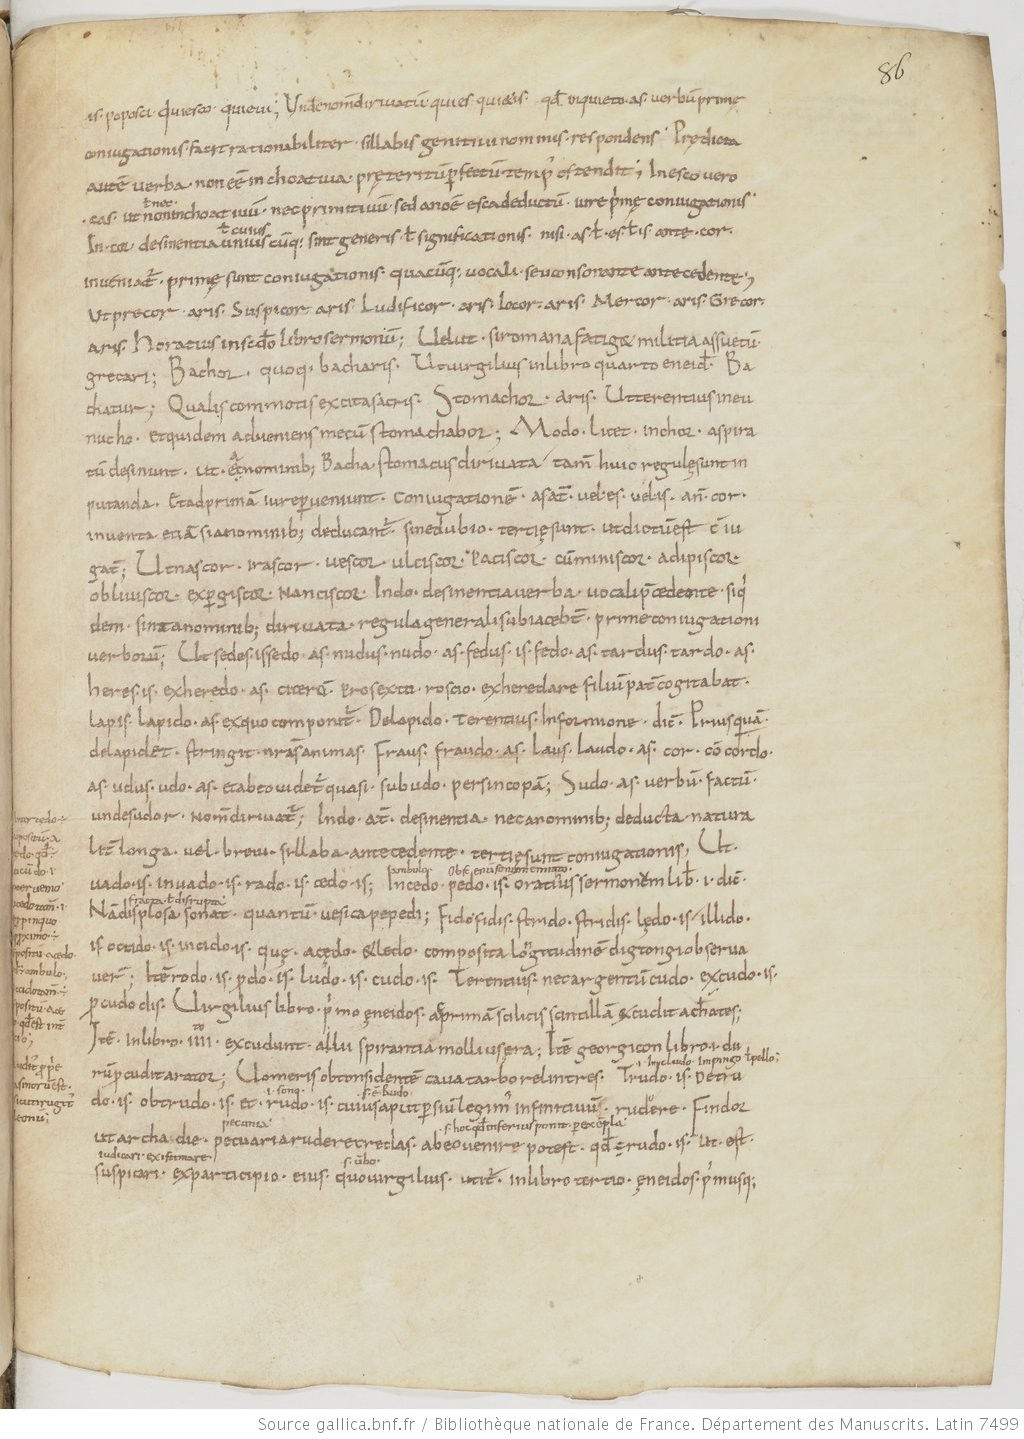 86
is· poposci· quiesco· quieui; Unde nom̄ diriuatū· quies quiẽis· qđ diquieto· as· uerbū primę
coniugationis· facit rationabiliter· sillabis genitiui nominis· respondens· Prędicta
autē uerba· non eē inchoatiua· pręteritū ꝑfectū temp̄ ostendit; In esco uero
ł nec
·cas· ut non inchoatiuū· nec primitiuū· sed a noē esca deductū· iure p̄mę coniugationis·
ł cuius
In· cor· desinentia uniuscuiusq; sint generis· ł significationis· nisi· as ł· es ł is· ante· cor·
inueniat̄· primę sunt coniugationis· quacūq; uocali· seu consonante antecedente;
Ut precor· aris· Suspicor· aris· Ludificor· aris· Iocor· aris· Mercor· aris· Grecor·
aris· Horatius in scđo libro sermonū; Uelut· si romana fatigat militia assuetū·
grecari; Bachor· quoq· bacharis· Ut uirgilius in libro quarto eneid̄· Ba
chatur; Qualis commotis excita sacris· Stomachor· aris· Ut terentius in eu
nucho· et quidem adueniens mecū stomachabor; Modo· licet· in chor· aspira
tū desinunt· ut· a nominib; Bacha· stomacus diriuata· tam̄ huic regulę sunt in
putanda· Et ad primā iure perueniunt· Coniugationē· as at̄· uel es· uel is· an̄· cor·
inuenta etiā si a nominib; deducant̄· sine dubio· tertię sunt· ut dictū est c̄iu
gat̄; Ut nascor· irascor· uescor· ulciscor· Paciscor· cūminiscor· adipiscor·
obliuiscor· expgiscor· Nanciscor· In do· desinentia uerba· uocali p̄cedente· siq̇
dem· sint a nominib; diriuata· regula generali subiacebt̄· prime coniugationi
uerborū; Ut sedes· is sedo· as· nudus· nudo· as· fedus· is· fedo· as· tardus· tardo· as·
heres· is· exheredo· as· cicerō· pro sexto· roscio· exheredare filiū pat̄ cogitabat·
lapis· lapido· as· ex quo componit̄· Delapido· Terentius· In formione· dic̄· Priusquā·
delapidet· stringit· nr̄as animas· Fraus· fraudo· as· Laus· laudo· as· cor· cōcordo·
as· udus· udo· as· et ab eo uidet̄ quasi· subudo· per sincopā; Sudo· as· uerbū· factū·
unde sudor· Nom̄ diriuat̄; In do· at̄· desinentia· nec a nominib; deducta· natura
lit̄ longa· uel· breui· sillaba· antecedente· tertię sunt coniugationis; Ut·
ambulo·
uado· is· inuado· is· rado· is· cedo· is; Incedo· pedo· is· oratius sermonem lib̄· i· dic̄·
fracta· ł disrupta
Nā displosa sonat· quantū· uesica pepedi; Fido· fidis· strido· stridis· lędo· is· illido·
is· occido· is· incido· is· quę· acędo· & lędo· composita longitudinē digtongi obserua
uer̄; Itē rodo· is· ꝑdo· is· ludo· is· cudo· is· Terentius· nec argentū cudo· excudo· is·
ꝑcudo dis· Uirgilius libro· p̄mo ęneidos· a primā scilicis scintillā excudit achates;
to
Itē· in libro· iiii· excudunt· alii spirantia mollius era; Itē georgicon libro· i· du
includo· impingo ł pello;
rū ꝑcudit arator; Uomeris obtonsi dentē caua tarbore lintres· Trudo· is· Detru
i· sono· s· ē· Rudo·
do· is· obtrudo· is· et· rudo· is· cuius apud persiū legim̄ infinitiuū· rudere· Findor
pecunia s· hoc qđ inferius ponit· p exēpla
ut archadie· pecuaria rudere credas· ab eo uenire potest· qđ ē rudo· is· ut· est·
iudicari· existimare s· ūbo·
suspicari· ex participio· eius· quo uirgilius· utit̄· in libro tertio· ęneidos· p̄musq;
Source gallica.bnf.fr / Bibliothèque nationale de France. Département des Manuscrits. Latin 7499